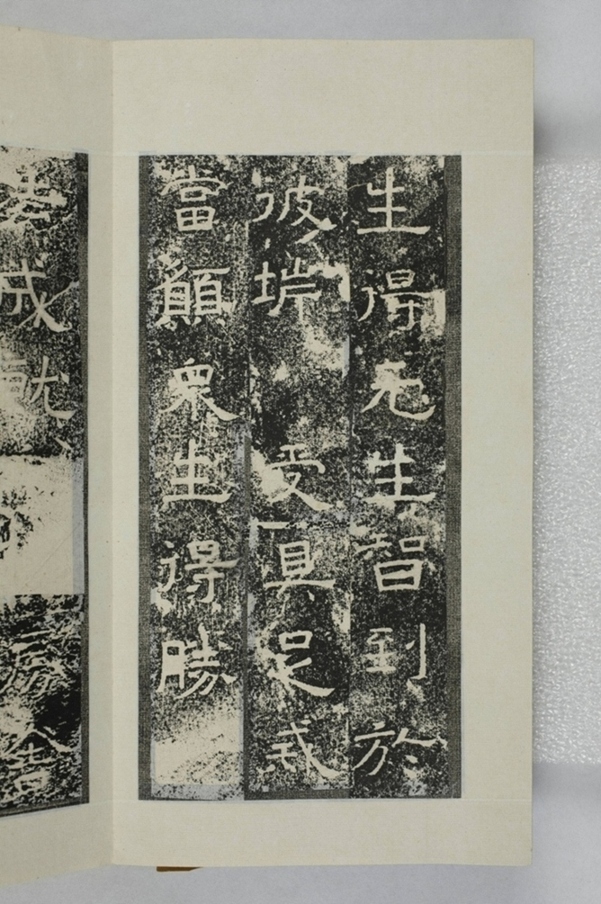 生得无生智到於
彼堓　受具足戒
當願眾生得勝
成就